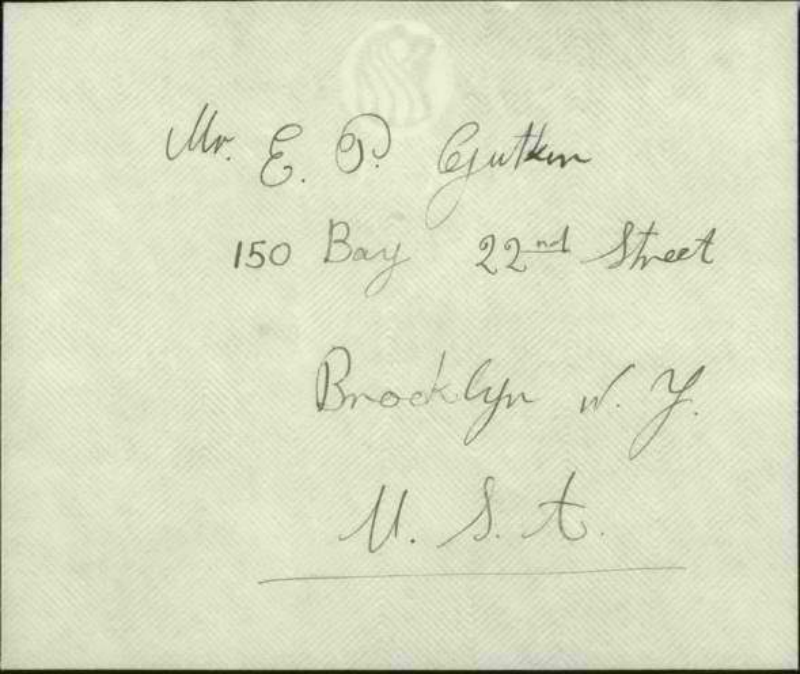 Mr. E. P. Gutkin
150 Bay 22nd Street
Brooklyn N. Y.
U. S. A.